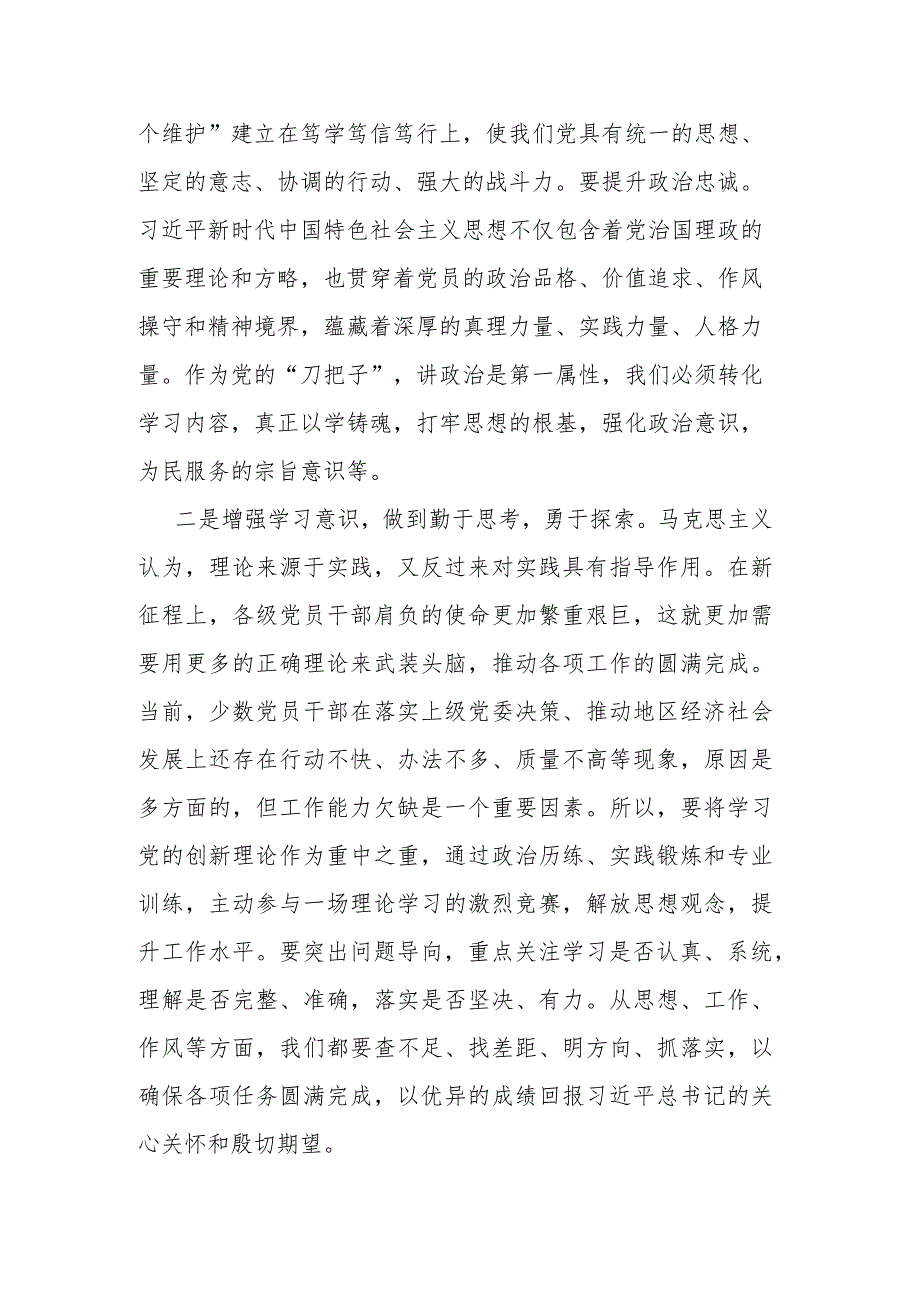 个维护”建立在笃学笃信笃行上，使我们党具有统一的思想、
坚定的意志、协调的行动、强大的战斗力。要提升政治忠诚。
习近平新时代中国特色社会主义思想不仅包含着党治国理政的
重要理论和方略，也贯穿着党员的政治品格、价值追求、作风
操守和精神境界，蕴藏着深厚的真理力量、实践力量、人格力
量。作为党的“刀把子”，讲政治是第一属性，我们必须转化
学习内容，真正以学铸魂，打牢思想的根基，强化政治意识，
为民服务的宗旨意识等。
二是增强学习意识，做到勤于思考，勇于探索。马克思主义
认为，理论来源于实践，又反过来对实践具有指导作用。在新
征程上，各级党员干部肩负的使命更加繁重艰巨，这就更加需
要用更多的正确理论来武装头脑，推动各项工作的圆满完成。
当前，少数党员干部在落实上级党委决策、推动地区经济社会
发展上还存在行动不快、办法不多、质量不高等现象，原因是
多方面的，但工作能力欠缺是一个重要因素。所以，要将学习
党的创新理论作为重中之重，通过政治历练、实践锻炼和专业
训练，主动参与一场理论学习的激烈竞赛，解放思想观念，提
升工作水平。要突出问题导向，重点关注学习是否认真、系统，
理解是否完整、准确，落实是否坚决、有力。从思想、工作、
作风等方面，我们都要查不足、找差距、明方向、抓落实，以
确保各项任务圆满完成，以优异的成绩回报习近平总书记的关
心关怀和殷切期望。